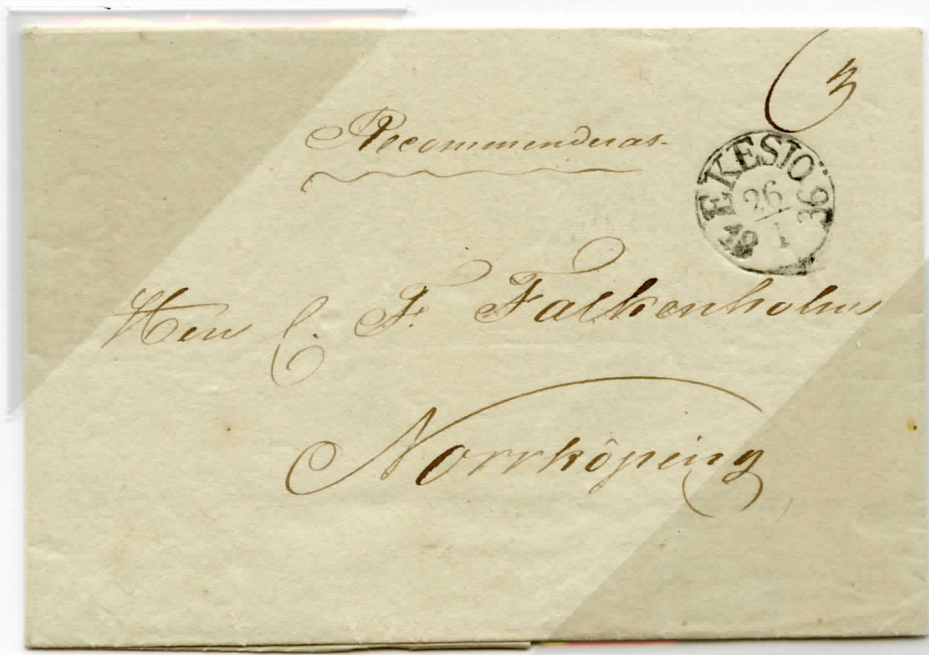 3
Recommenderas.
EKESIÖ
26
1
18 36
Herr C. F. Falkenholm
Norrköping